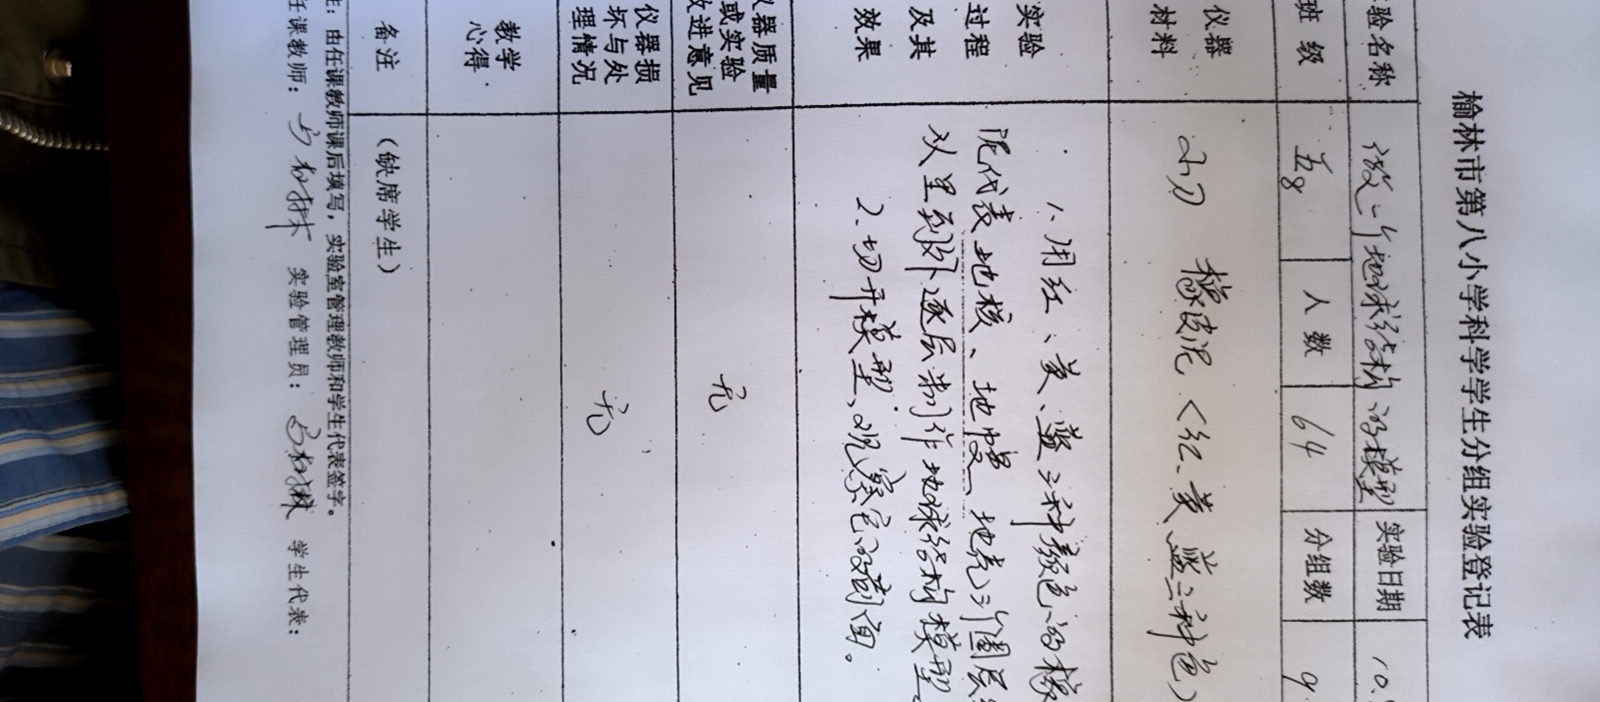 榆林市第八小学科学学生分组实验登记表
验名称 做一个地球结构的模型 实验日期 10.
班 级 五8 人 数 64 分组数 9
仪器
材料
小刀 橡皮泥（红、黄、蓝三种色）
实验
过程
及其
效果
1、用红、黄、蓝三种颜色的橡
泥代表地核、地幔、地壳三个圈层
从里到外逐层制作地球结构模型
2、切开模型、观察它的剖面。
器质量
或实验
改进意见
无
仪器损
坏与处
理情况
无
教学
心得
备注 （缺席学生）
注：由任课教师课后填写，实验室管理教师和学生代表签字。
任课教师： 实验管理员： 学生代表：